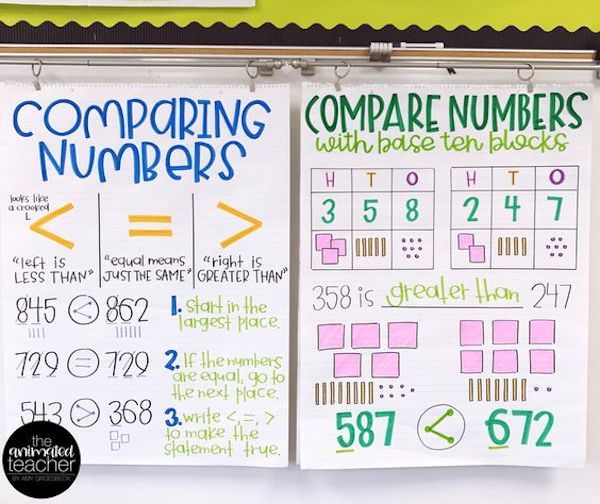 COMPARING
NUMBERS
looks like
a crooked
L
< = >
"left is
LESS THAN"
"equal means
JUST THE SAME"
"right is
GREATER THAN"
845 < 862
729 = 729
543 > 368
1. Start in the
largest place.
2. If the numbers
are equal, go to
the next place.
3. write <, =, >
to make the
statement true.
the
animated
teacher
BY AMY GROESBECK
COMPARE NUMBERS
with base ten blocks
H T O
3 5 8
H T O
2 4 7
358 is greater than 247
587 < 672